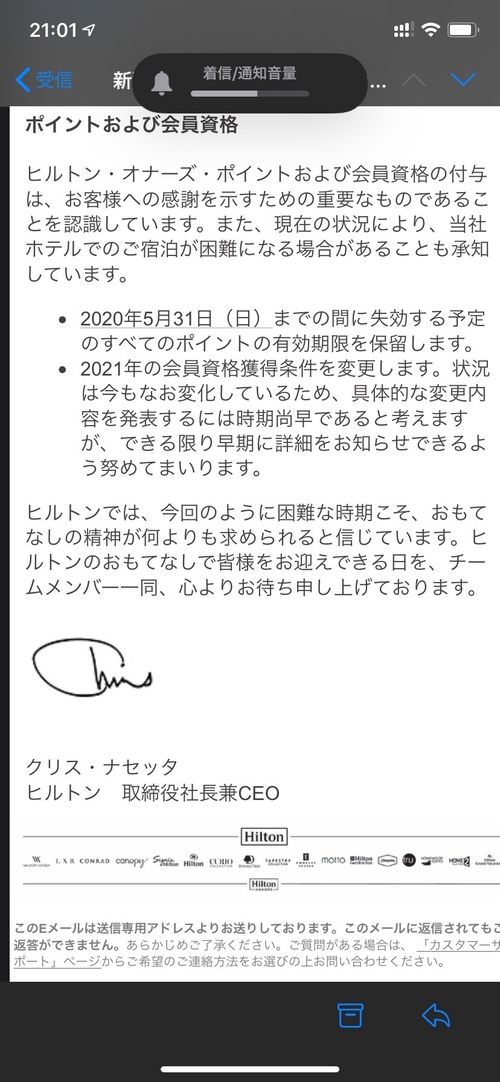 21:01
受信
新
着信/通知音量
...
ポイントおよび会員資格
ヒルトン・オナーズ・ポイントおよび会員資格の付与
は、お客様への感謝を示すための重要なものであるこ
とを認識しています。また、現在の状況により、当社
ホテルでのご宿泊が困難になる場合があることも承知
しています。
• 2020年5月31日（日）までの間に失効する予定
のすべてのポイントの有効期限を保留します。
• 2021年の会員資格獲得条件を変更します。状況
は今もなお変化しているため、具体的な変更内
容を発表するには時期尚早であると考えます
が、できる限り早期に詳細をお知らせできるよ
う努めてまいります。
ヒルトンでは、今回のように困難な時期こそ、おもて
なしの精神が何よりも求められると信じています。ヒ
ルトンのおもてなしで皆様をお迎えできる日を、チー
ムメンバー一同、心よりお待ち申し上げております。
Chris
クリス・ナセッタ
ヒルトン　取締役社長兼CEO
Hilton
LXR CONRAD canopy Hilton CURIO TAPESTRY MOTTO Hilton tru HOME2
Hilton
HONORS
このEメールは送信専用アドレスよりお送りしております。このメールに返信されてもご
返答ができません。あらかじめご了承ください。ご質問がある場合は、「カスタマーサ
ポート」ページからご希望のご連絡方法をお選びの上お問い合わせください。